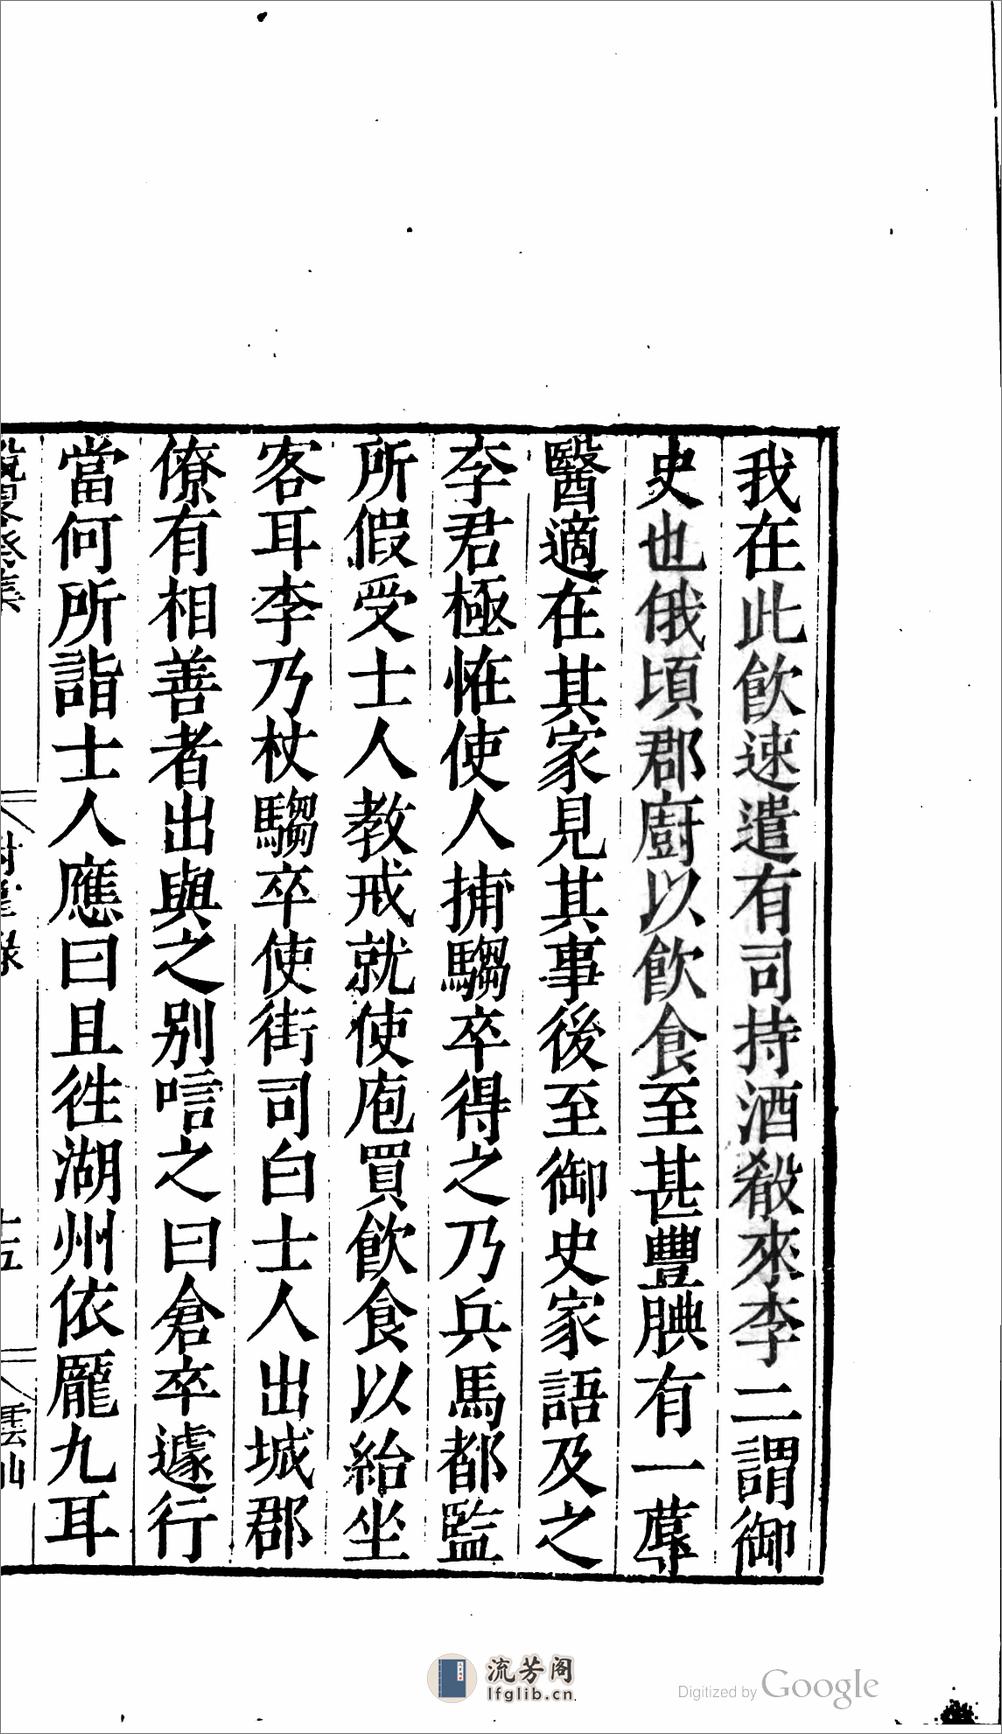 我在此飲速遣有司持酒殽來李二謂御
史也俄頃郡廚以飲食至甚豐腆有一蓐
醫適在其家見其事後至御史家語及之
李君極恠使人捕騶卒得之乃兵馬都監
所假受士人教戒就使庖買飲食以紿坐
客耳李乃杖騶卒使街司白士人出城郡
僚有相善者出與之别唁之曰倉卒遽行
當何所詣士人應曰且徃湖州依龎九耳
雲仙
流芳阁
lfglib.cn
Digitized by Google